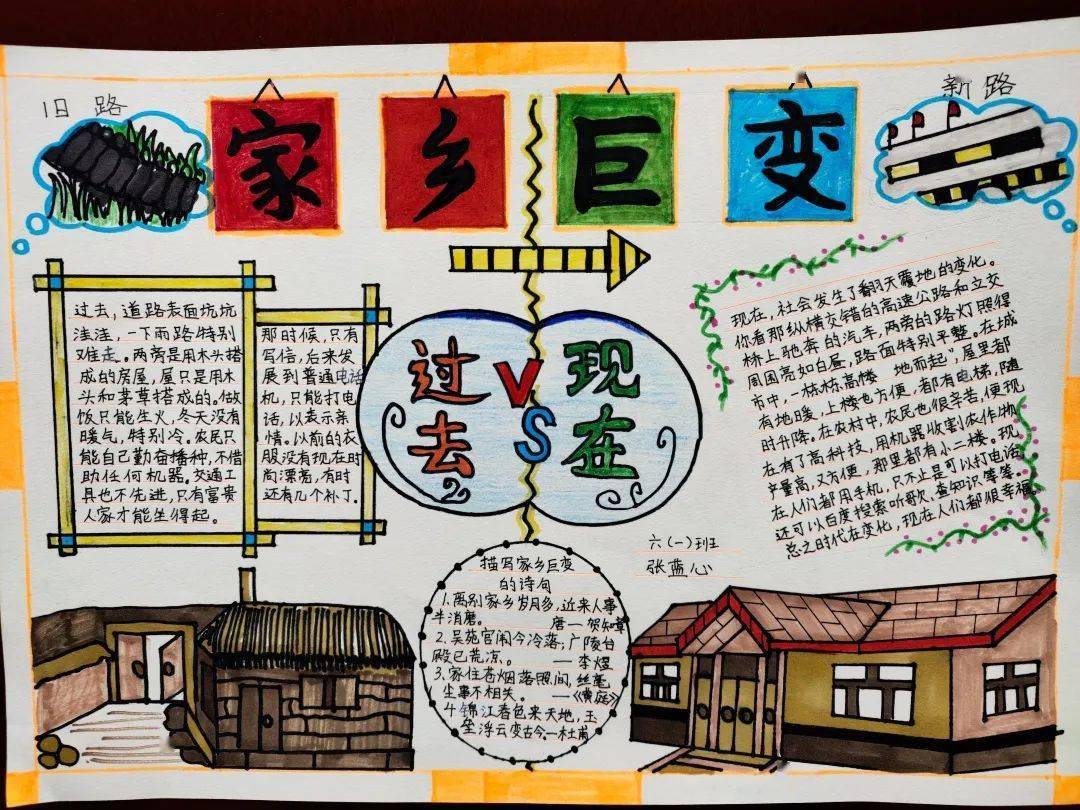 旧路
家乡巨变
新路
过去，道路表面坑坑
洼洼，一下雨路特别
难走。两旁是用木头搭
成的房屋，屋只是用木
头和茅草搭成的。做
饭只能生火，冬天没有
暖气，特别冷。农民只
能自己勤奋播种，不借
助任何机器。交通工
具也不先进，只有富贵
人家才能坐得起。
那时候，只有
写信，后来发
展到普通电话
机，只能打电
话，以表示亲
情。以前的衣
服没有现在时
尚漂亮，有时
还有几个补丁。
过去
VS
现在
现在，社会发生了翻天覆地的变化。
你看那纵横交错的高速公路和立交
桥上驰奔的汽车，两旁的路灯照得
周围亮如白昼，路面特别平整。在城
市中，一栋栋高楼 地而起，屋里都
有地暖，上楼也方便，都有电梯，随
时升降。在农村中，农民也很辛苦，便现
在有了高科技，用机器收割农作物
产量高，又方便，那里都有小二楼。现
在人们都用手机，只不止是可以打电话
还可以百度搜索听歌、查知识等等。
总之时代在变化，现在人们都很幸福
六(一)班
张蓝心
描写家乡巨变
的诗句
1.离别家乡岁月多，近来人事
半消磨。 唐一贺知章
2.吴苑宫闱今冷落；广陵台
殿已荒凉。 一李煜
3.家住苍烟落照间，丝毫
尘事不相关。 一《黄庭》
4.锦江春色来天地，玉
垒浮云变古今.一杜甫